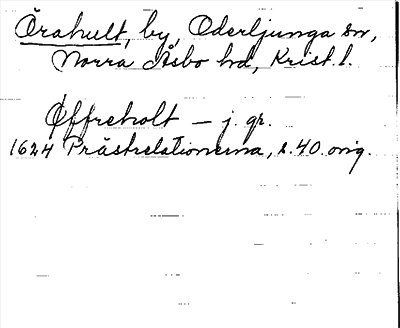 Örahult, by, Oderljunga sn,
Norra Åsbo hd, Krist. l.
Øffreholt – j. gr.
1624 Prästrelationerna, s. 40. orig.